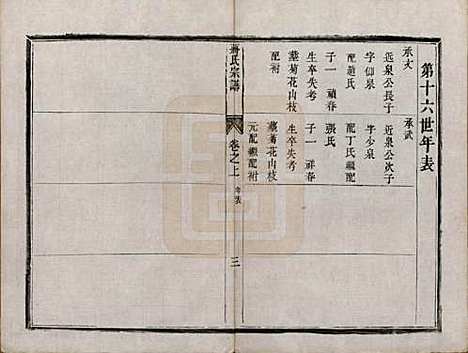 第十六世年表
承文
近泉公長子
字仰泉
配趙氏
子一 禎春
生卒失考
墓菊花山枝
配祔
承武
近泉公次子
字少泉
配丁氏繼配
張氏
子一 祥春
生卒失考
墓菊花山枝
元配繼配祔
氏宗譜
卷之上
年表
三